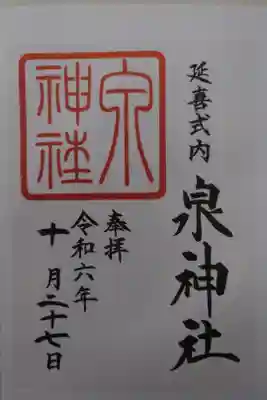 延喜式内
泉神社
泉
神社
奉拝
令和六年
十月二十七日